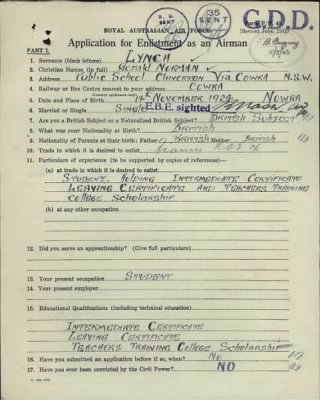 35
SENT
C.D.D.
ROYAL AUSTRALIAN AIR FORCE
Application for Enlistment as an Airman
PART I.
1. Surname (block letters) LYNCH
2. Christian Names (in full) GERALD NORMAN
3. Address PUBLIC SCHOOL CHIVERTON VIA COWRA N.S.W.
4. Railway or Bus Centre nearest to your address COWRA
5. Date and Place of Birth NOVEMBER 1924 NOWRA
4. Married or Single SINGLE E.B.E. sighted
6. Are you a British Subject or a Naturalised British Subject? BRITISH SUBJECT
8. What was your Nationality at Birth? BRITISH
9. Nationality of Parents at their birth: Father BRITISH Mother BRITISH
10. Trade in which it is desired to enlist
11. Particulars of experience (to be supported by copies of references):—
(a) at trade in which it is desired to enlist
STUDENT, HOLDING INTERMEDIATE CERTIFICATE
LEAVING CERTIFICATE AND TEACHERS TRAINING
COLLEGE SCHOLARSHIP
(b) at any other occupation
12. Did you serve an apprenticeship? (Give full particulars)
13. Your present occupation STUDENT
14. Your present employer
15. Educational Qualifications (including technical education)
INTERMEDIATE CERTIFICATE
LEAVING CERTIFICATE
TEACHERS TRAINING COLLEGE SCHOLARSHIP
16. Have you submitted an application before if so, when? NO
17. Have you ever been convicted by the Civil Power? NO